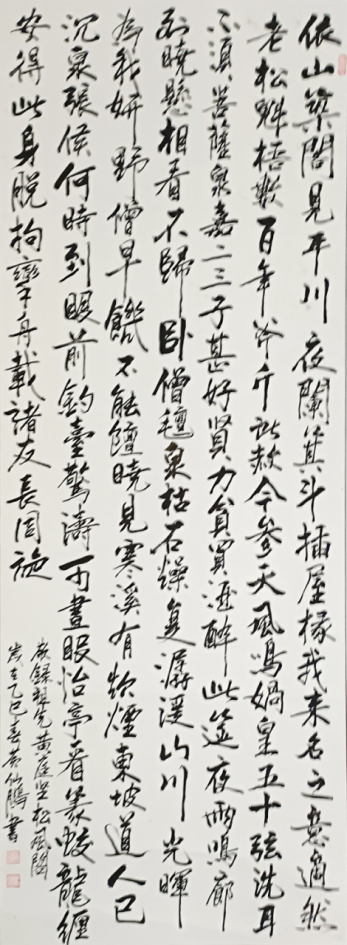 依山築閣見平川夜闌箕斗插屋椽我来名之意適然
老松魁梧數百年斧斤所赦今參天風鳴媧皇五十弦洗耳
不須菩薩泉嘉二三子甚好賢力貧買酒醉此筵夜雨鳴廊
到曉懸相看不歸卧僧氈泉枯石燥復潺湲山川光暉
為我妍野僧早饑不能饘曉見寒溪有炊煙東坡道人已
沉泉張侯何時到眼前釣臺驚濤可晝眠怡亭看篆蛟龍纏
安得此身脫拘攣舟載諸友長周旋
錄祖先黄庭堅松風閣
歲在乙巳春黄鵬書